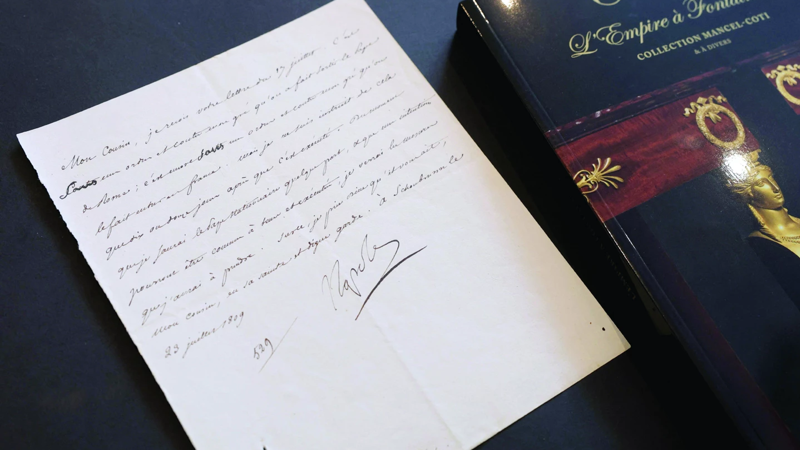 Mon Cousin, je reçois votre lettre du 17 juillet. C'est
sans mon ordre et contre mon gré qu'on a fait sortir le Pape
de Rome; c'est encore sans mon ordre et contre mon gré qu'on
le fait entrer en france. mais je ne suis instruit de cela
que dix ou douze jours après que c'est exécuté. Du moment
que je saurai le Pape stationnaire quelque part, et que vos intentions
pourront être connues à tems et exécutées, je verrai les mesures
que j'aurai à prendre. Sur ce je prie Dieu qu'il vous ait,
Mon cousin, en sa sainte et digne garde. à Schoenbrunn le
23 juillet 1809
539
Napole
L'Empire à Fontai
COLLECTION MANCEL-COTI
& À DIVERS